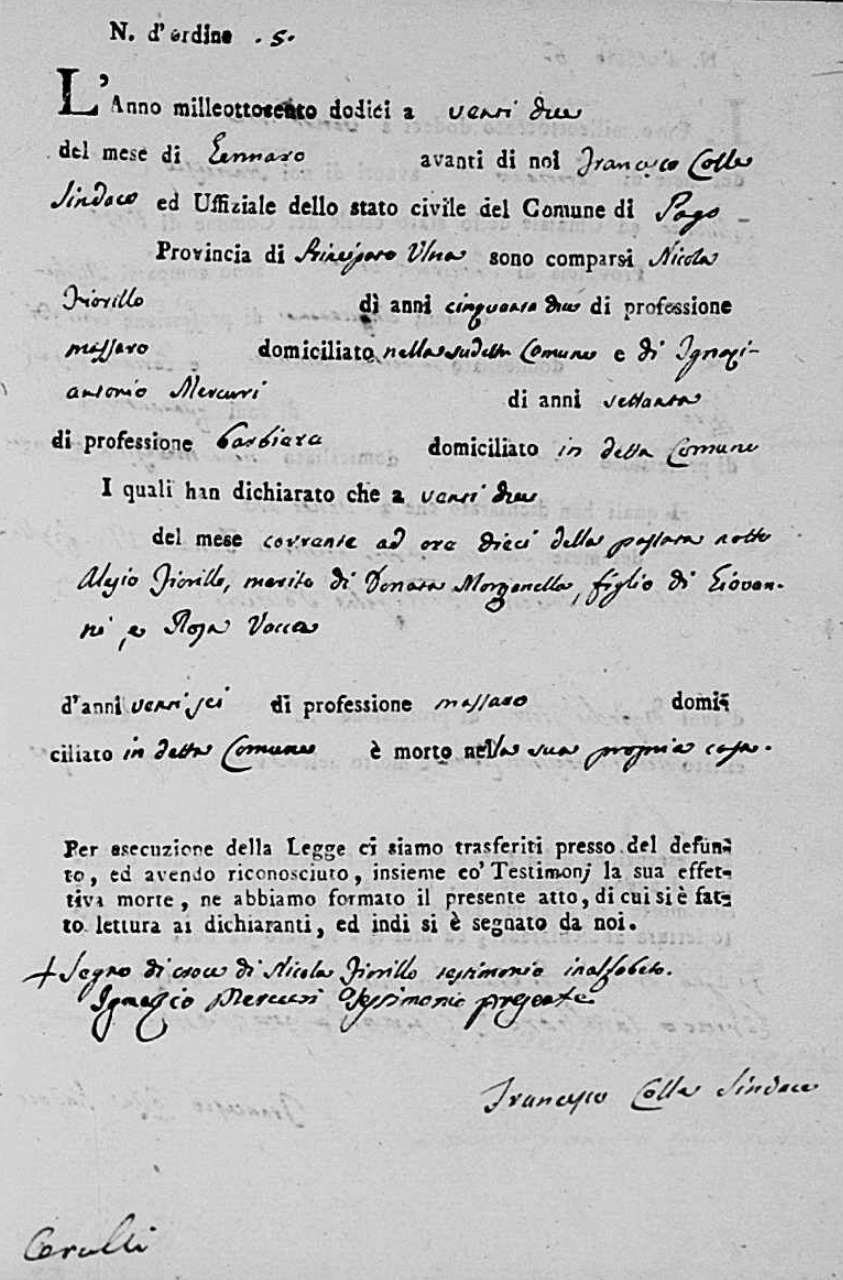 N. d'ordine . 5.
L'Anno milleottocento dodici a venti due
del mese di Gennaro avanti di noi Francesco Colle
Sindaco ed Uffiziale dello stato civile del Comune di Pago
Provincia di Principato Ultra sono comparsi Nicola
Fiorillo di anni cinquanta due di professione
massaro domiciliato nella sudetta Comune e di Ignazi-
antonio Mercurri di anni settanta
di professione barbiere domiciliato in detta Comune
I quali han dichiarato che a venti due
del mese corrente ad ore dieci della passata notte
Alesio Fiorillo, marito di Donata Morganella, figlio di Giovan-
ni, e Rosa Vacca
d'anni venti sei di professione massaro domi-
ciliato in detta Comune è morto nella sua propria casa.
Per esecuzione della Legge ci siamo trasferiti presso del defun-
to, ed avendo riconosciuto, insieme co' Testimonj la sua effet-
tiva morte, ne abbiamo formato il presente atto, di cui si è fat-
to lettura ai dichiaranti, ed indi si è segnato da noi.
+ Segno di croce di Nicola Fiorillo testimonio inalfabeto.
Ignazio Mercuri Testimonio presente
Francesco Colle Sindaco
Cerulli